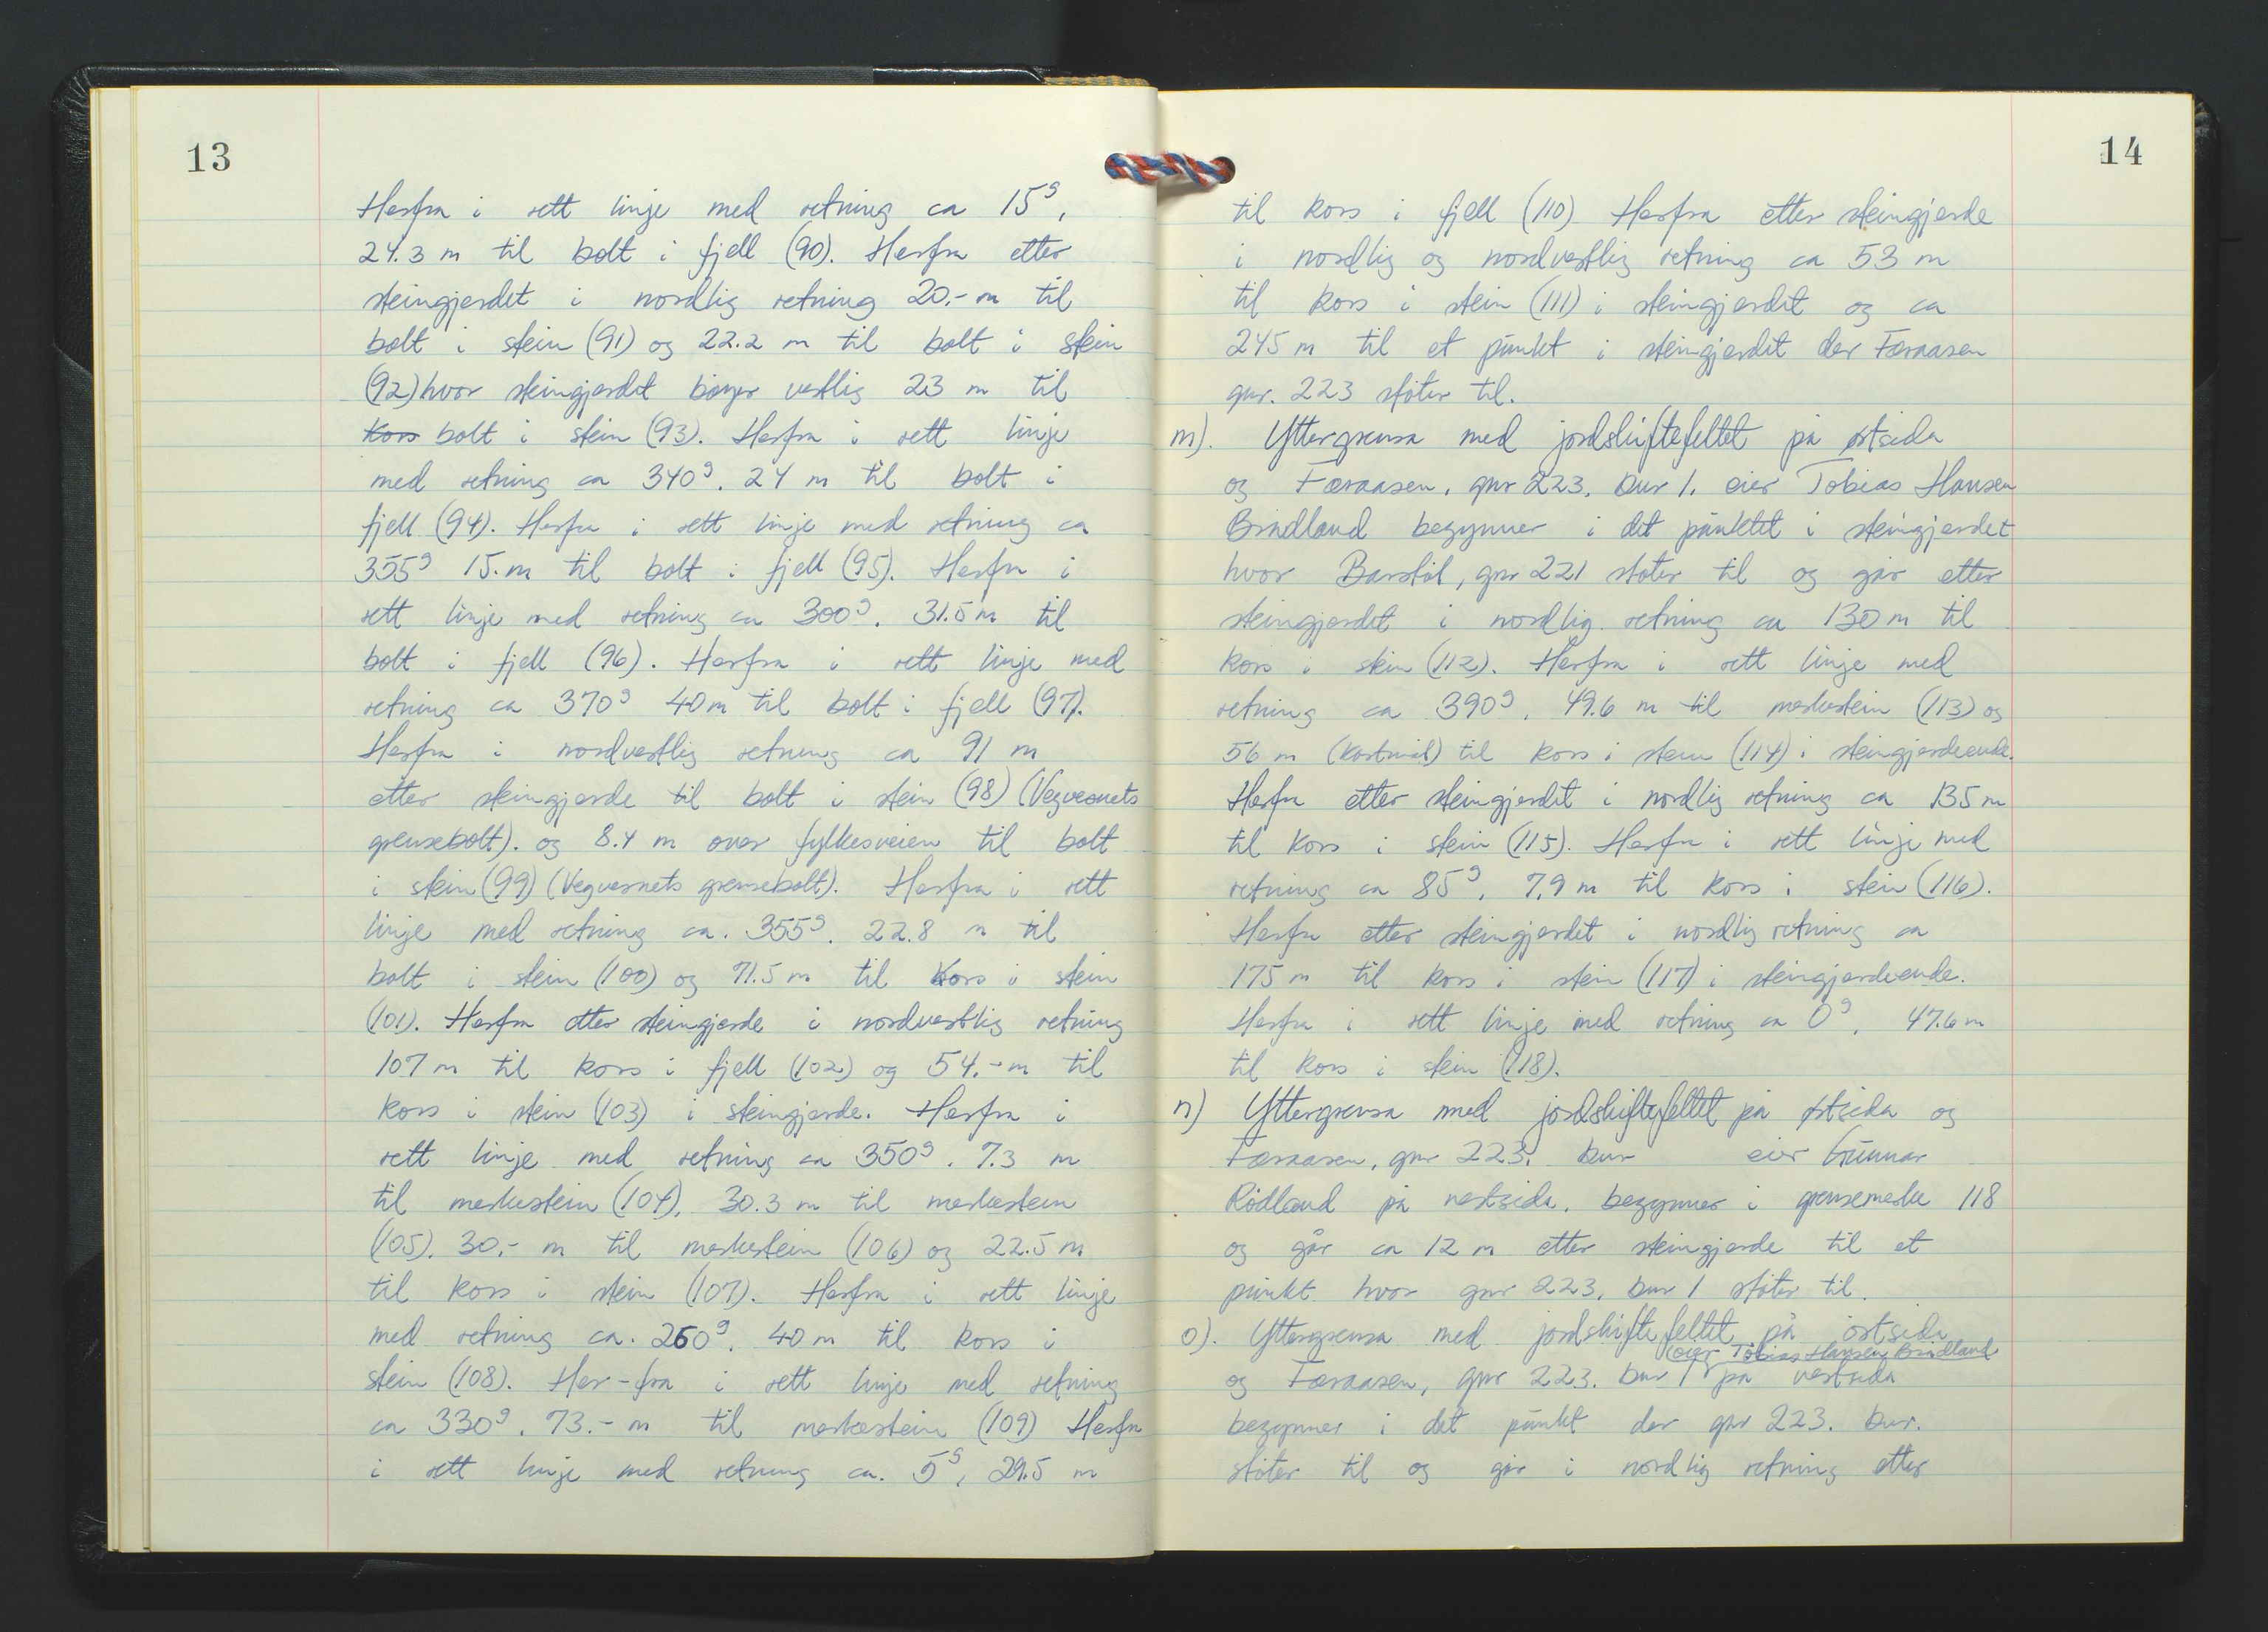 13
Herfra i rett linje med retning ca 15g,
24.3 m til bolt i fjell (90). Herfra etter
steingjerdet i nordlig retning 20,- m til
bolt i stein (91) og 22.2 m til bolt i stein
(92) hvor steingjerdet bøyer vestlig 23 m til
Kors bolt i stein (93). Herfra i rett linje
med retning ca 340g. 24 m til bolt i
fjell (94). Herfra i rett linje med retning ca
355g 15.m til bolt i fjell (95). Herfra i
rett linje med retning ca 300g. 31.5 m til
bolt i fjell (96). Herfra i rett linje med
retning ca 370g 40 m til bolt i fjell (97).
Herfra i nordvestlig retning ca 91 m
etter steingjerde til bolt i stein (98) (Vegvesnets
grensebolt). og 8.4 m over fylkesveien til bolt
i stein (99) (Vegvesnets grensebolt). Herfra i rett
linje med retning ca. 355g. 22.8 m til
bolt i stein (100) og 71.5 m til kors i stein
(101). Herfra etter steingjerde i nordvestlig retning
107 m til kors i fjell (102) og 54.- m til
kors i stein (103) i steingjerde. Herfra i
rett linje med retning ca 350g. 7.3 m
til merkestein (104), 30.3 m til merkestein
(105), 30,- m til merkestein (106) og 22.5 m
til kors i stein (107). Herfra i rett linje
med retning ca. 260g. 40 m til kors i
stein (108). Her-fra i rett linje med retning
ca 330g. 73.- m til merkestein (109) Herfra
i rett linje med retning ca. 5g, 29.5 m
14
til kors i fjell (110) Herfra etter steingjerde
i nordlig og nordvestlig retning ca 53 m
til kors i stein (111) i steingjerdet og ca
245 m til et punkt i steingjerdet der Færaasen
gnr. 223 støter til.
m). Yttergrensa med jordskiftefeltet på østsida
og Færaasen, gnr 223, bnr 1. eier Tobias Hansen
Brådland begynner i det punktet i steingjerdet
hvor Barstøl, gnr 221 støter til og går etter
steingjerdet i nordlig retning ca 130 m til
kors i stein (112). Herfra i rett linje med
retning ca 390g, 49.6 m til merkestein (113) og
56 m (kartmål) til kors i stein (114) i steingjerdeende.
Herfra etter steingjerdet i nordlig retning ca 135 m
til kors i stein (115). Herfra i rett linje med
retning ca 85g, 7,9 m til kors i stein (116).
Herfra etter steingjerdet i nordlig retning ca
175 m til kors i stein (117) i steingjerdeende.
Herfra i rett linje med retning ca 0g, 47.6 m
til kors i stein (118).
n) Yttergrensa med jordskiftefeltet på østsida og
Færaasen, gnr 223, bnr eier Gunnar
Rødland på vestsida, begynner i grensemerke 118
og går ca 12 m etter steingjerde til et
punkt hvor gnr 223, bnr 1 støter til.
o). Yttergrensa med jordskiftefeltet på østsida
eier Tobias Hansen Brådland
og Færaasen, gnr 223. bnr 1 på vestsida
begynner i det punkt der gnr 223. bnr.
støter til og går i nordlig retning etter